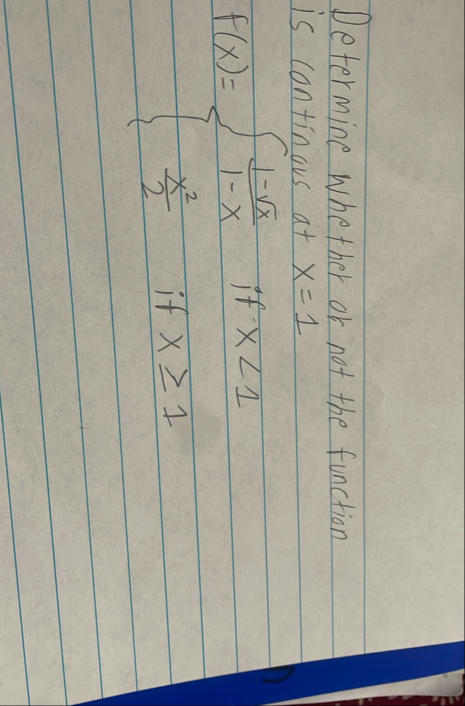 Determine whether or not the function
is continous at x = 1
f(x) = { (1-√x)/(1-x) if x < 1
x²/2 if x ≥ 1